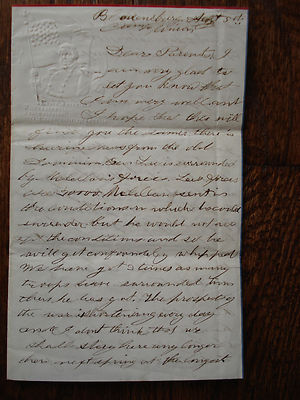 Sept 5th
Camp
Dear Parents I
am very glad to
let you know that
I am very well and
I hope that this will
give you the same there is
news from the old
Dominion Gen Lee is surrounded
by McClelan's forces Lee's forces
McClelan sent in
the conditions in which he could
surender but he would not ac
the conditions and so he
will get confoundedly whip ped
We have got 2 times as many
troops have surrounded him
than he has got. The prospect of
the war is brightening every day
and I dont think that we
shall stay here any longer
than next spring at the longest